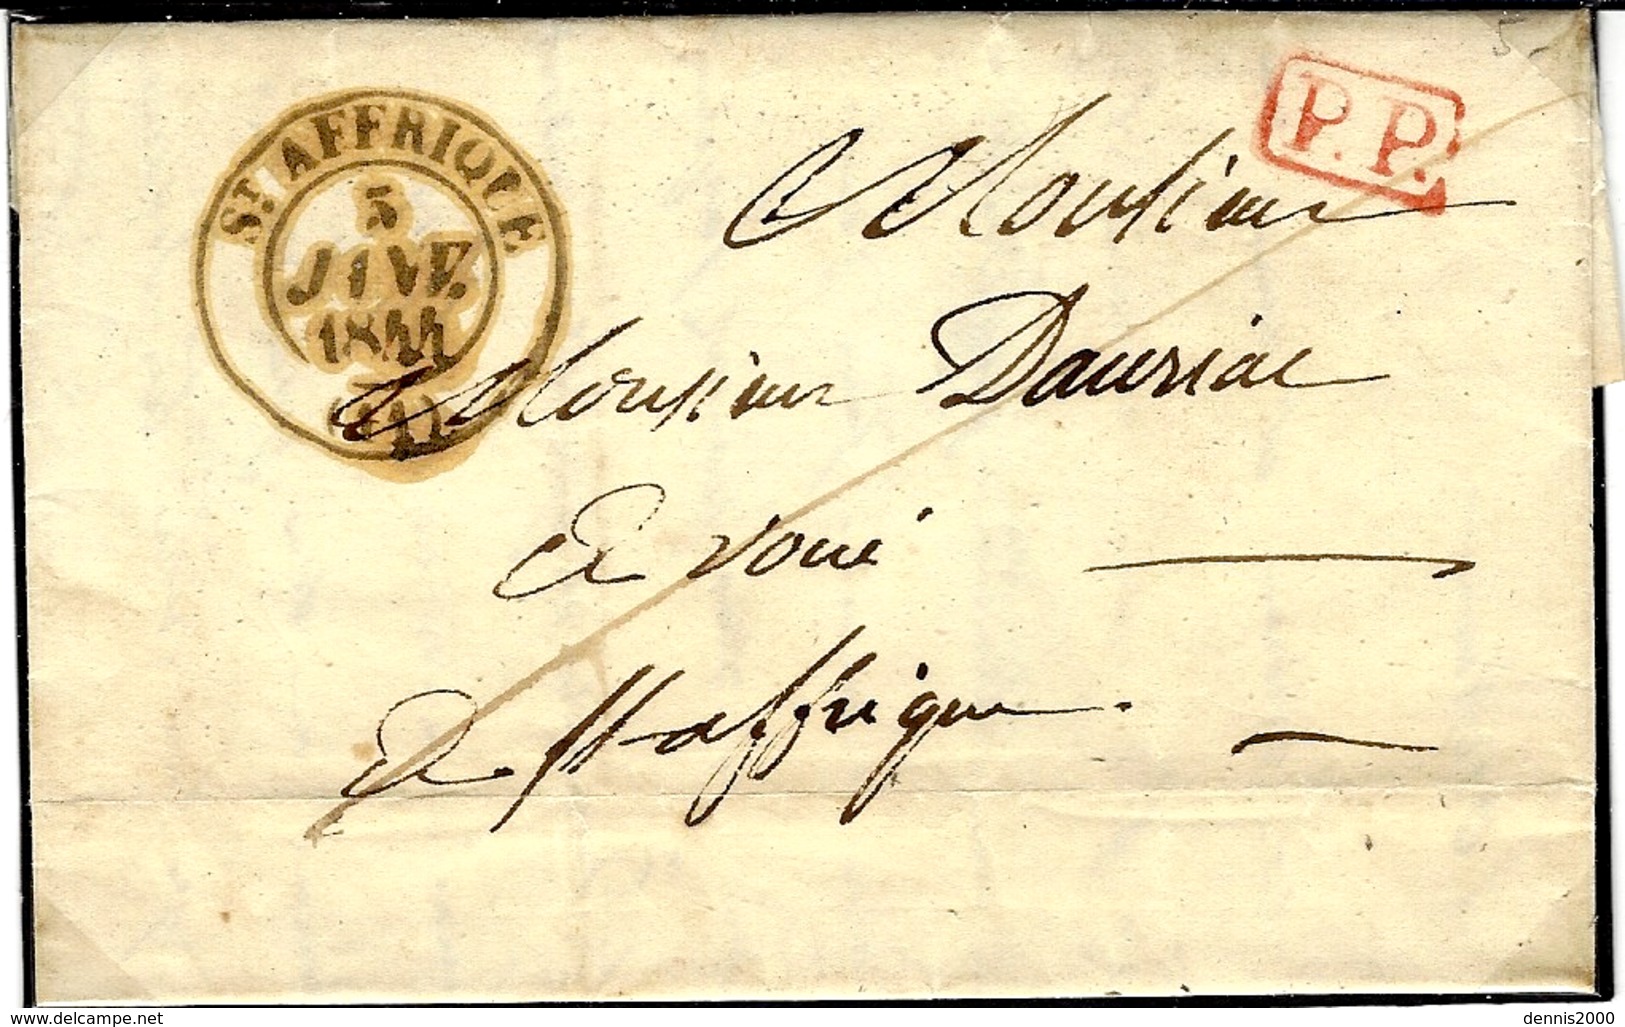 5-
P.P.
ST. AFFRIQUE
5
JANV.
1844
(11)
Monsieur
Monsieur Dauriac
avoué
a St affrique.
www.delcampe.net
dennis2000